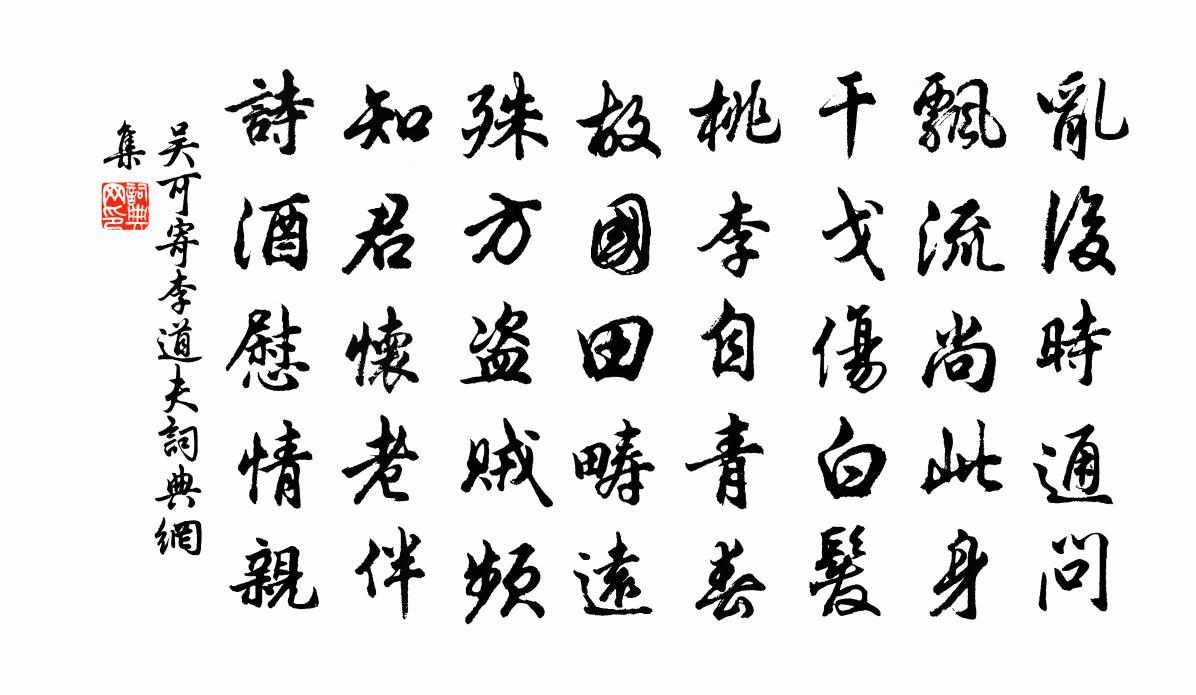 亂後時通問
飄流尚此身
干戈傷白髮
桃李自青春
故國田疇遠
殊方盗賊頻
知君懷老伴
詩酒慰情親
吴可寄李道夫詞典網
集
詞典
网印